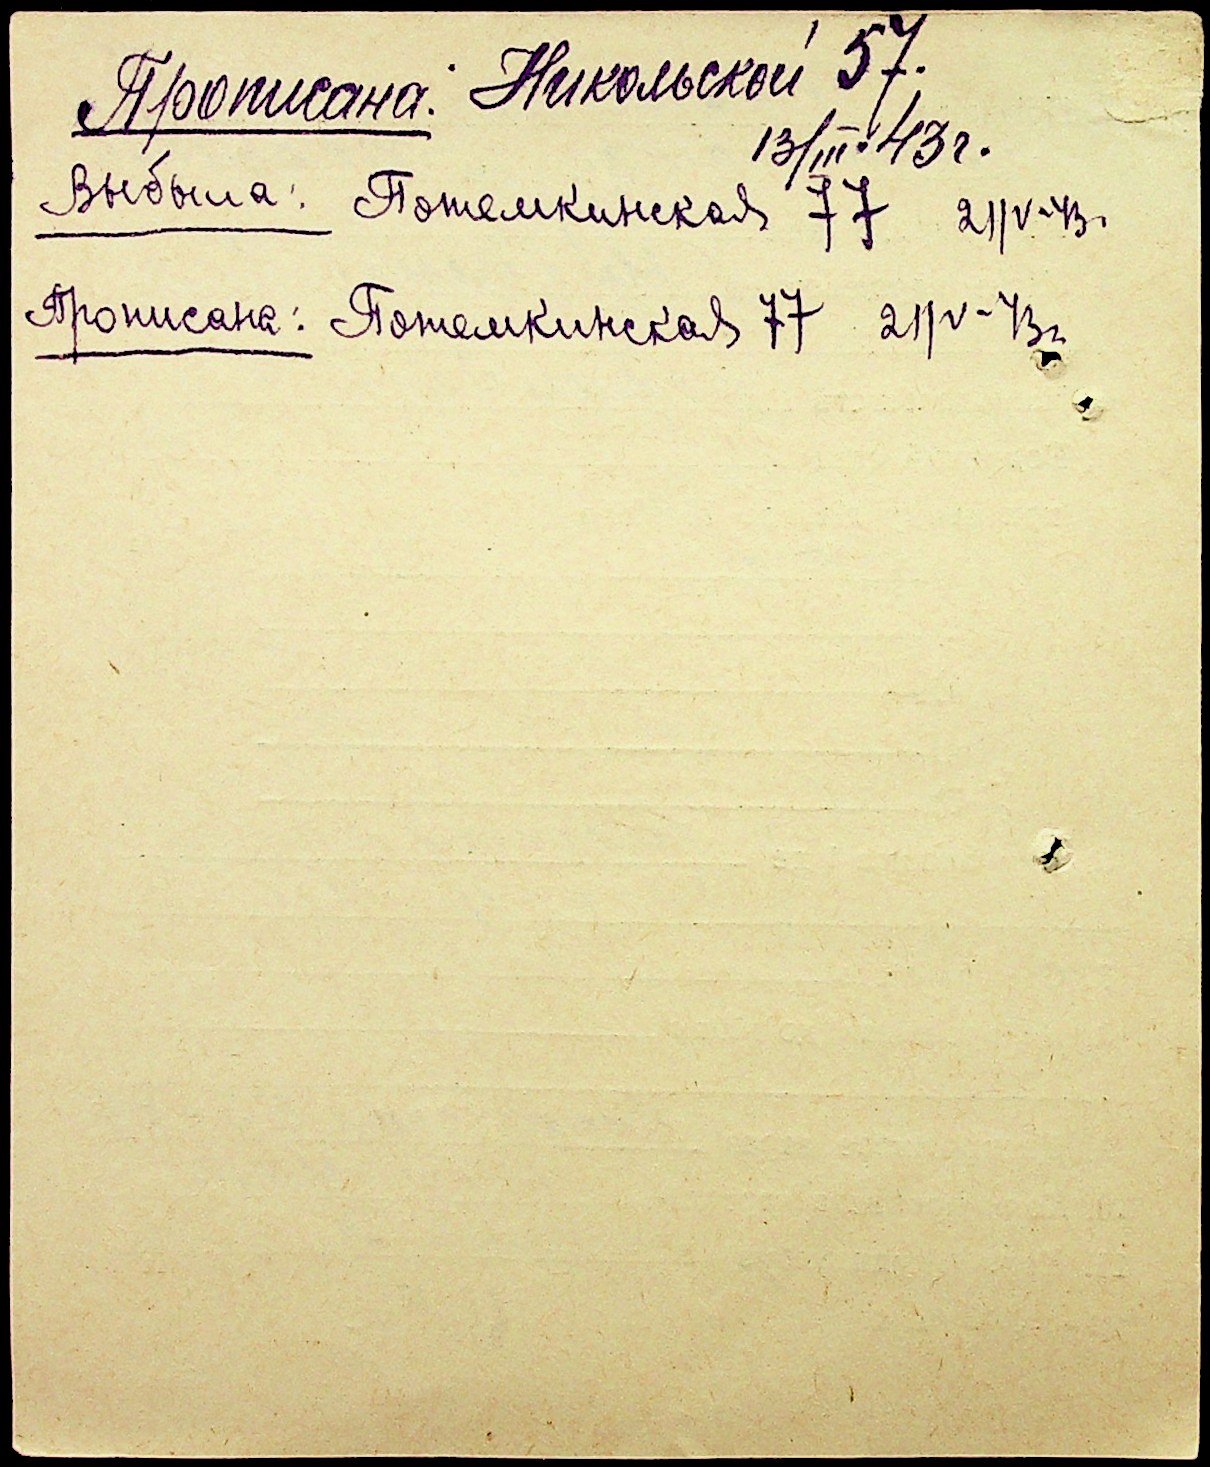 Прописана: Никольской 57.
13/III.43г.
Выбыла: Потемкинская 77 21/V-43г
Прописана: Потемкинская 77 21/V-43г